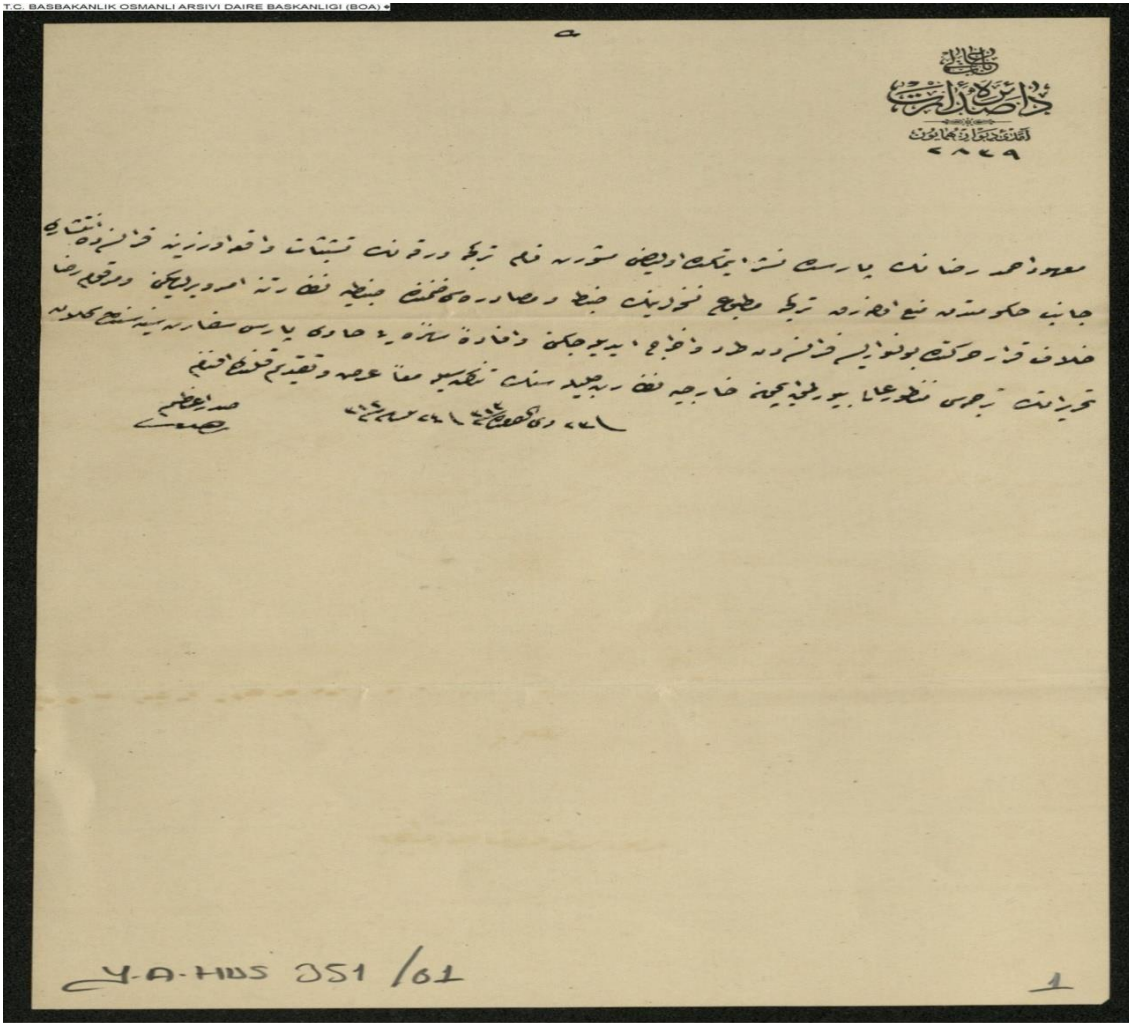 T.C. BASBAKANLIK OSMANLI ARSIVI DAIRE BASKANLIGI (BOA)
باب عالی
دائرهٔ صدارت
آمدئ دیوان همایون
٢٨٣٩
معهود احمد رضانك پارسده نشر ایتمكده اولدیغی مشورت نام تركجه ورقه‌نك تشبثات واقعه اوزرینه فرانسه‌ده انتشاری
جانب حكومتدن منع اولنه‌رق تركجه مطبوع نسخه‌لرینك ضبط و مصادره‌سی ضمننده ضبطیه نظارتنه امر ویرلدیكی و مرقوم رضا
خلاف قرار حركتده بولنور ایسه فرانسه‌دن طرد و اخراج ایدیله‌جكی افاده‌سنه حاوی پارس سفارت سنیه‌سندن كلان
تحریراتك ترجمه‌سی منظور عالی بیورلمق ایچون خارجیه نظارت جلیله‌سنك تذكره‌سیله معاً عرض و تقدیم قلنمشدر افندم
صدر اعظم
Y-A-HUS 351/61
1